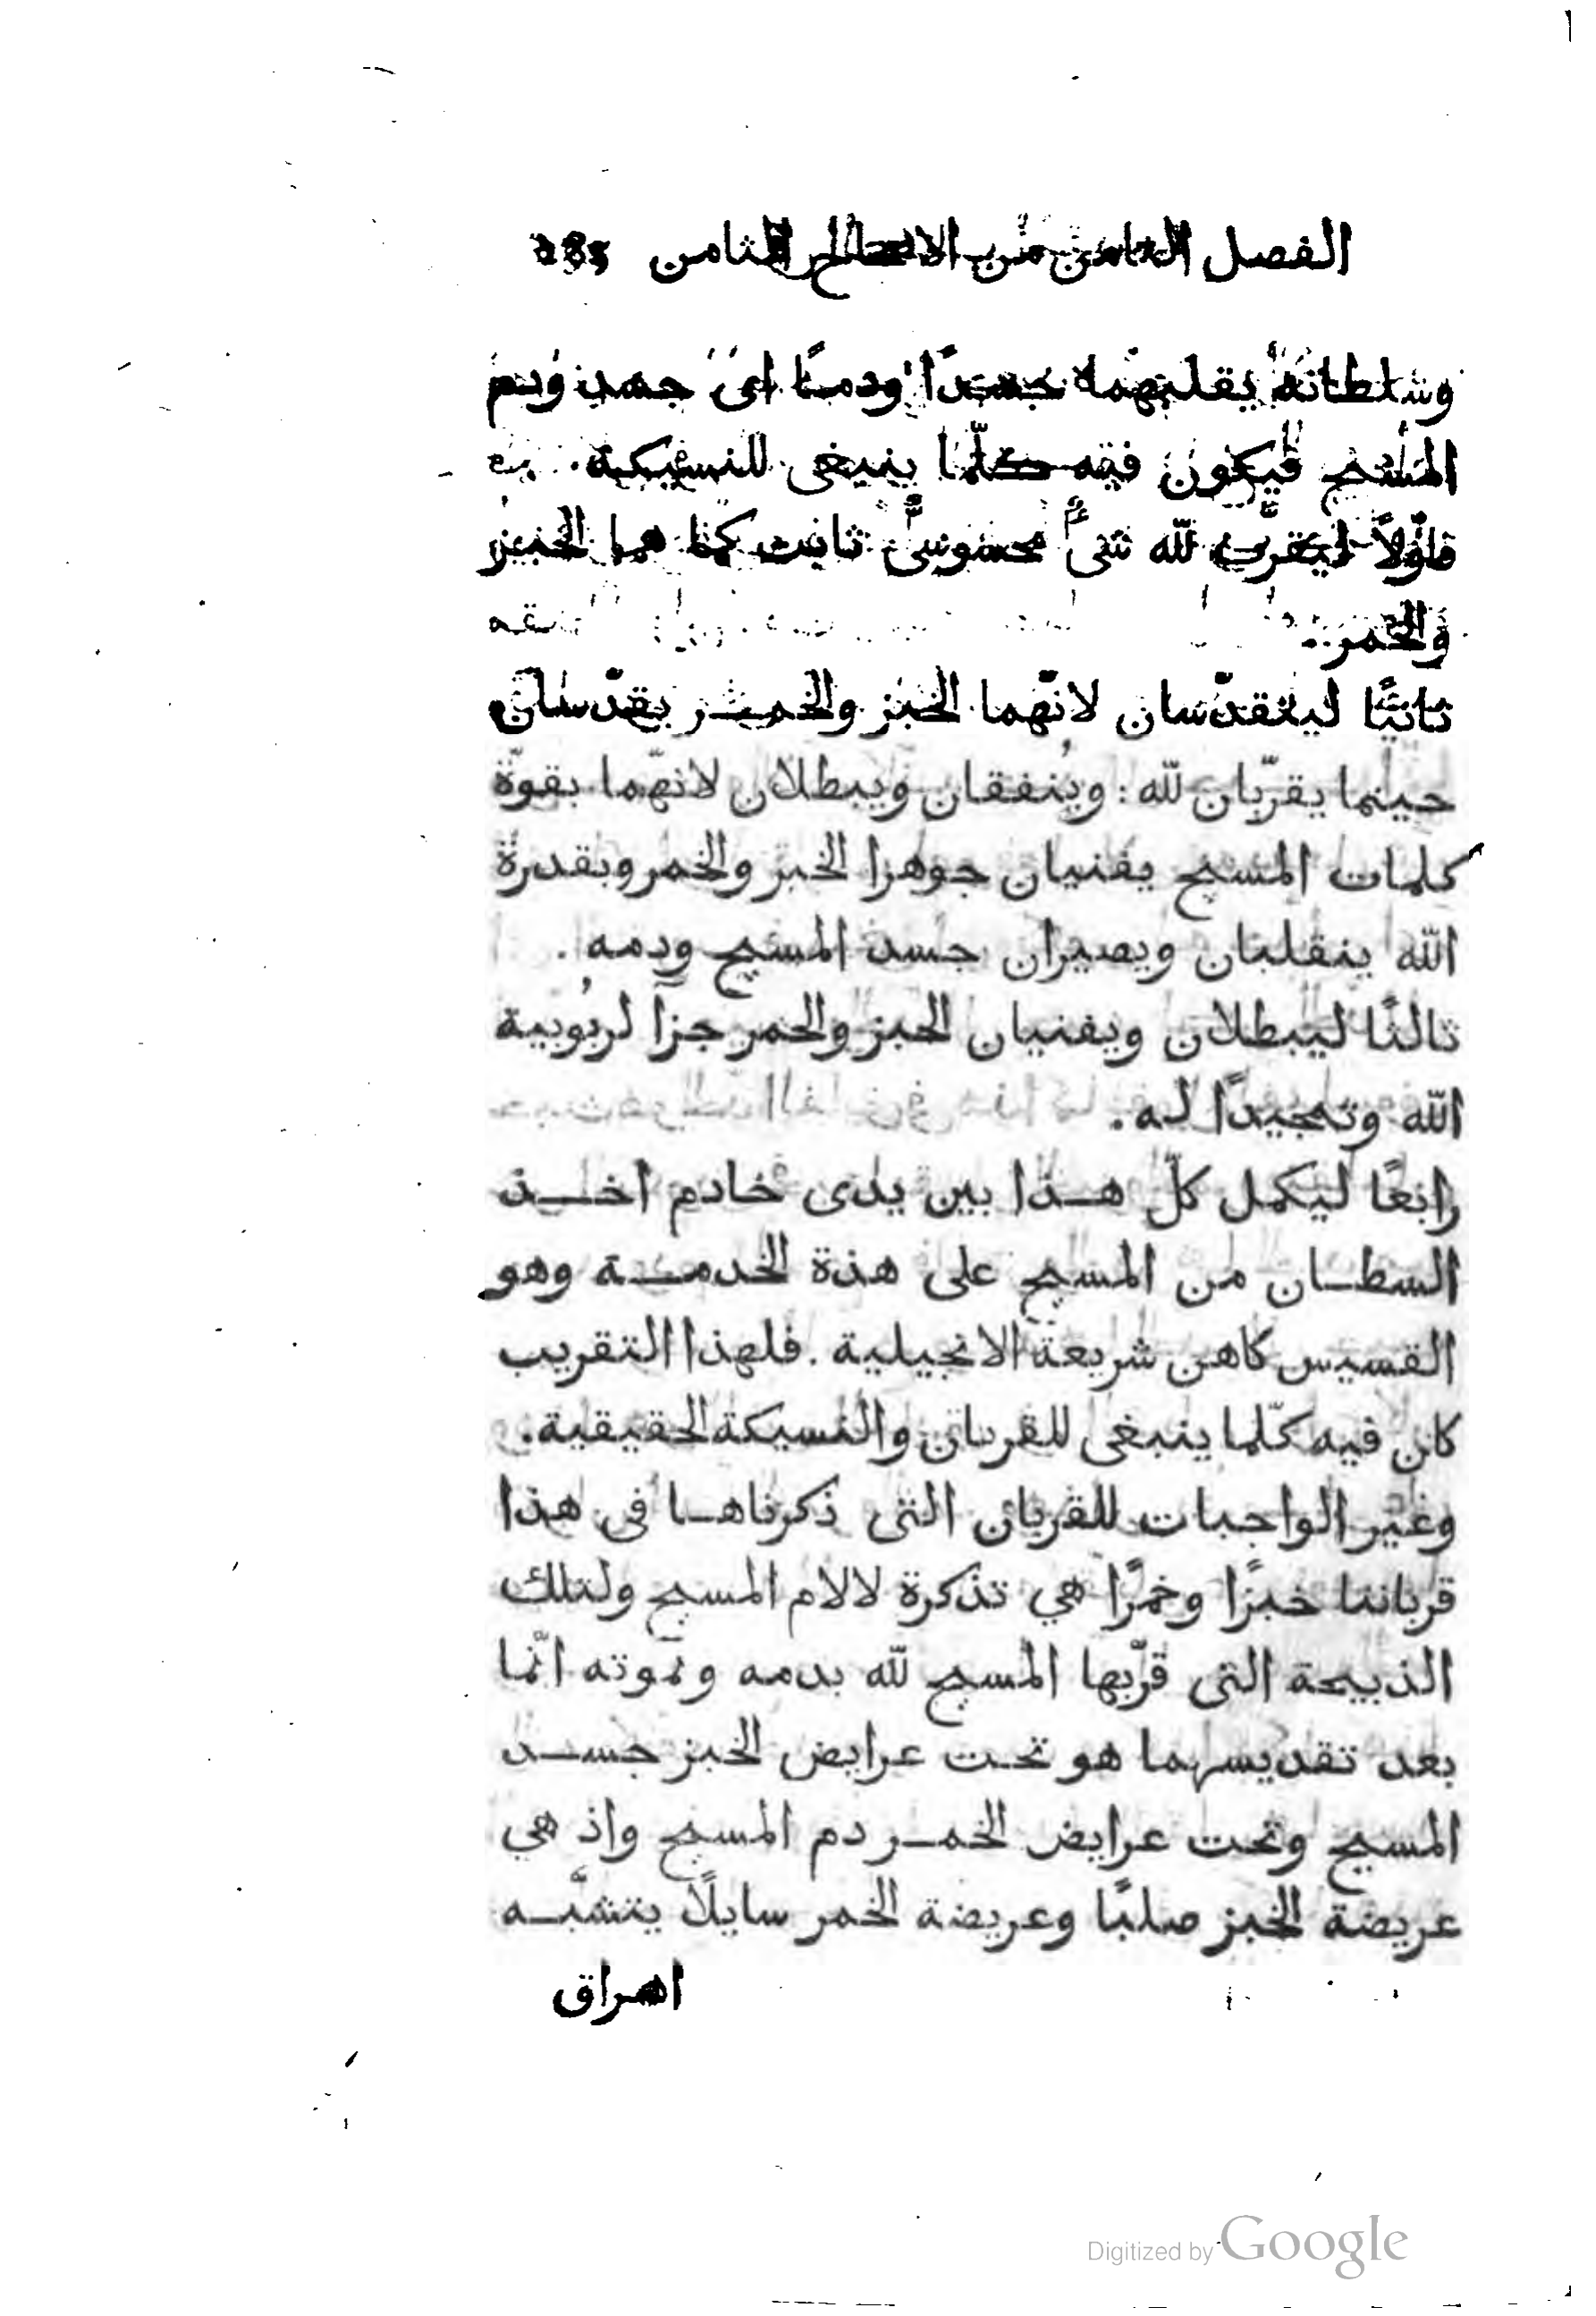 الفصل الثامن من الاصحاح الثامن 285
وسلطانه يقلبهما جسدًا ودمًا اى جسد ودم
المسيح فيكون فيه كلّما ينبغى للنسيكة.
فاوّلاً ليتقرّب لله شىٌ محسوسىٌّ ثابت كما هما الخبز
والخمر.
ثانيًا ليتقدّسان لانّهما الخبز والخمــر يقدّسان
حينما يقرّبان لله : وينفقان ويبطلان لانّهما بقوّة
كلمات المسيح يفنيان جوهرا الخبز والخمر وبقدرة
الله ينقلبان ويصيران جسد المسيح ودمه .
ثالثًا ليبطلان ويفنيان الخبز والخمر جزآ لربُوبية
الله وتمجيدًا لـه .
رابعًا ليكمل كلّ هــذا بين يدى خادم اخــذ
السطــان من المسيح على هذة الخدمــة وهو
القسيس كاهن شريعة الانجيلية . فلهذا التقريب
كان فيه كلّما ينبغى للقربان والنسيكة الحقيقية .
وغير الواجبات للقربان التى ذكرناهــا فى هذا
قرباننا خبزًا وخمرًا هي تذكرة لالام المسيح ولتلك
الذبيحة التى قرّبها المسيح لله بدمه وبموته انّما
بعد تقديسهما هو تحت عرايض الخبز جســد
المسيح وتحت عرايض الخمــر دم المسيح واذ هي
عريضة الخبز صلبًا وعريضة الخمر سايلًا يتشبّــه
اهراق
Digitized by Google